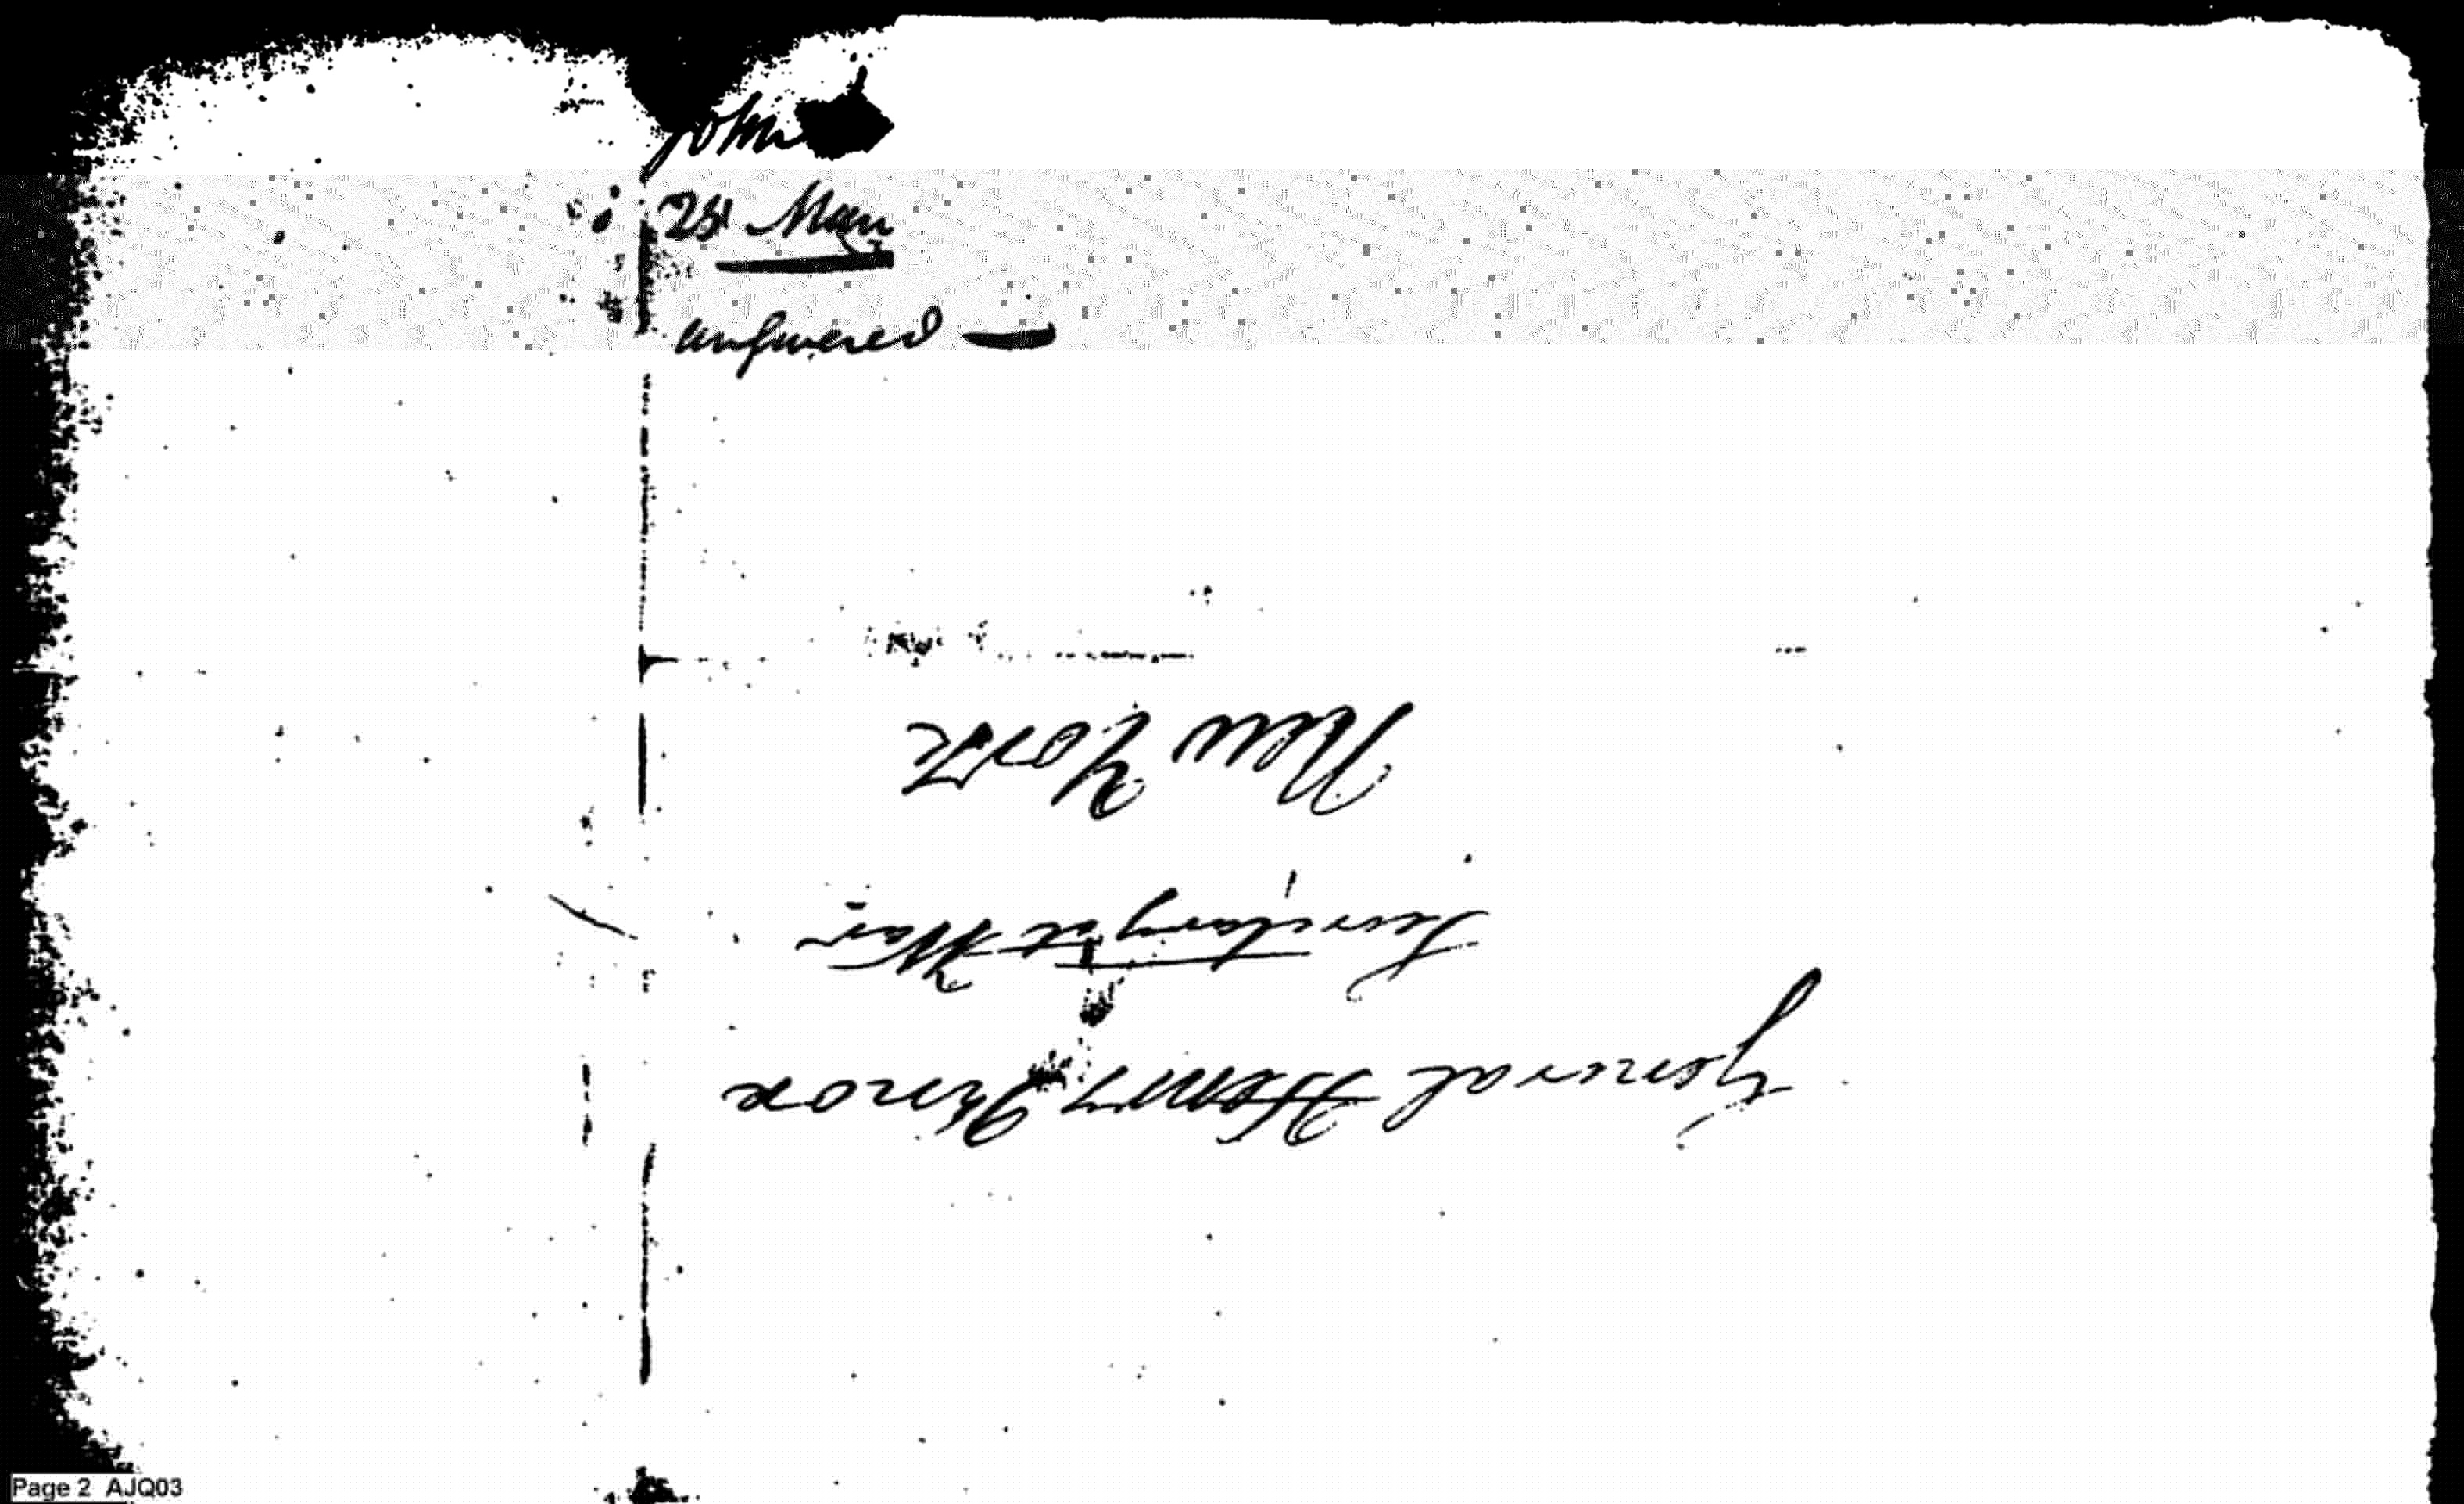 John
25 May
answered
General Henry Knox
Secretary at War
New York
Page 2 AJQ03